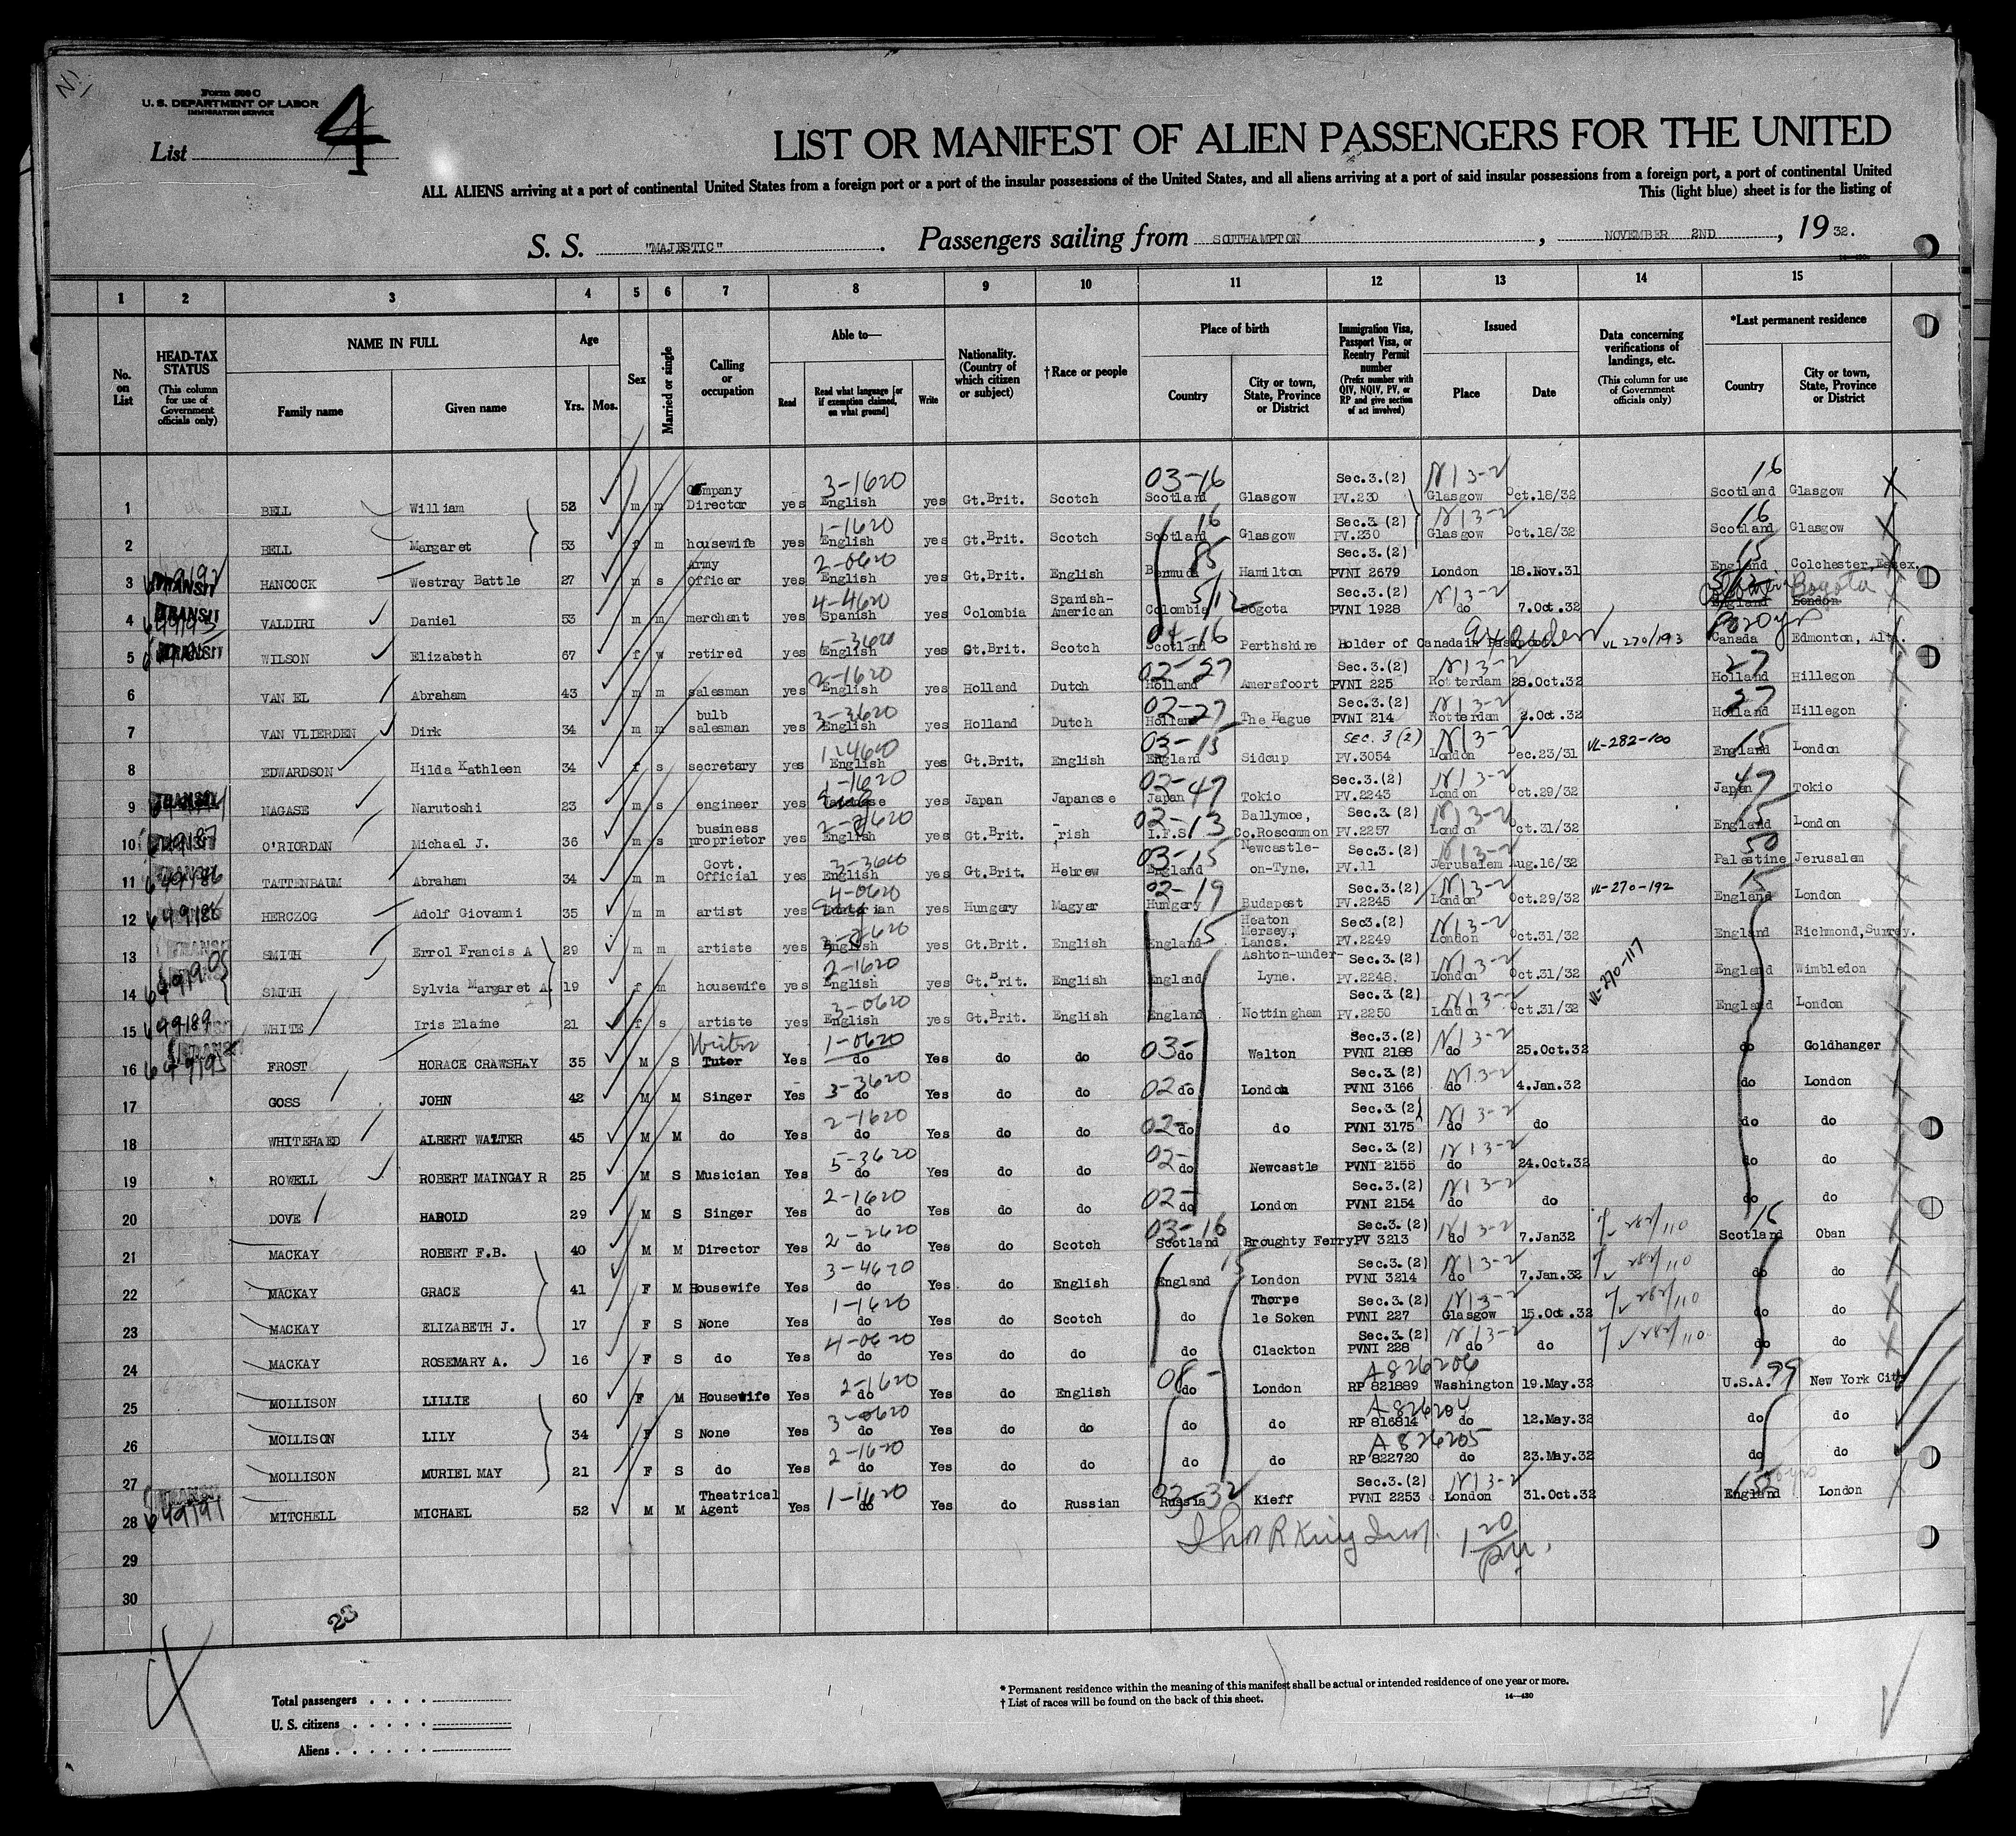 Form 500 C
U. S. DEPARTMENT OF LABOR
IMMIGRATION SERVICE
List 4
LIST OR MANIFEST OF ALIEN PASSENGERS FOR THE UNITED
ALL ALIENS arriving at a port of continental United States from a foreign port or a port of the insular possessions of the United States, and all aliens arriving at a port of said insular possessions from a foreign port, a port of continental United
This (light blue) sheet is for the listing of
S. S. "MAJESTIC". Passengers sailing from SOUTHAMPTON, NOVEMBER 2ND, 19 32.
1 2 3 4 5 6 7 8 9 10 11 12 13 14 15
No. on List
HEAD-TAX STATUS (This column for use of Government officials only)
NAME IN FULL Family name Given name
Age Yrs. Mos.
Sex
Married or single
Calling or occupation
Able to— Read Read what language [or if exemption claimed, on what ground] Write
Nationality. (Country of which citizen or subject)
† Race or people
Place of birth Country City or town, State, Province or District
Immigration Visa, Passport Visa, or Reentry Permit number (Prefix number with QIV, NQIV, PV, or RP and give section of act involved)
Issued Place Date
Data concerning verifications of landings, etc. (This column for use of Government officials only)
*Last permanent residence Country City or town, State, Province or District
1 BELL William 52 m m Company Director yes 3-1620 English yes Gt.Brit. Scotch 03-16 Scotland Glasgow Sec.3.(2) PV.230 N13-2 Glasgow Oct.18/32 16 Scotland Glasgow
2 BELL Margaret 53 f m housewife yes 1-1620 English yes Gt.Brit. Scotch 16 Scotland Glasgow Sec.3.(2) PV.230 N13-2 Glasgow Oct.18/32 16 Scotland Glasgow
3 TRANSIT HANCOCK Westray Battle 27 m s Army Officer yes 2-0620 English yes Gt.Brit. English 85 Bermuda Hamilton Sec.3.(2) PVNI 2679 London 18.Nov.31 15 England Colchester, Essex.
4 TRANSIT VALDIRI Daniel 53 m m merchant yes 4-4620 Spanish yes Colombia Spanish-American 512 Colombia Bogota Sec.3.(2) PVNI 1928 N13-2 do 7.Oct.32 England London Bogota
5 TRANSIT WILSON Elizabeth 67 f w retired yes 1-3620 English yes Gt.Brit. Scotch 04-16 Scotland Perthshire Holder of Canadain Passport VL 270/193 Canada Edmonton, Alta.
6 VAN EL Abraham 43 m m salesman yes 2-1620 English yes Holland Dutch 02-27 Holland Amersfoort Sec.3.(2) PVNI 225 N13-2 Rotterdam 28.Oct.32 27 Holland Hillegon
7 VAN VLIERDEN Dirk 34 m m bulb salesman yes 3-3620 English yes Holland Dutch 02-27 Holland The Hague Sec.3.(2) PVNI 214 N13-2 Rotterdam 2.Oct.32 27 Holland Hillegon
8 EDWARDSON Hilda Kathleen 34 f s secretary yes 1-4620 English yes Gt.Brit. English 03-15 England Sidcup SEC. 3 (2) PV.3054 N13-2 London Dec.23/31 VL-282-100 15 England London
9 TRANSIT NAGASE Narutoshi 23 m s engineer yes 1-1620 Japanese yes Japan Japanese 02-47 Japan Tokio Sec.3.(2) PV.2243 N13-2 London Oct.29/32 47 Japan Tokio
10 TRANSIT 649187 O'RIORDAN Michael J. 36 m s business proprietor yes English yes Gt.Brit. rish 02-13 I.F.S. Ballymoe, Co.Roscommon Sec.3.(2) PV.2257 N13-2 London Oct.31/32 15 England London
11 TRANSIT 649186 TATTENBAUM Abraham 34 m m Govt. Official yes 3-3620 English yes Gt.Brit. Hebrew 03-15 England Newcastle-on-Tyne. Sec.3.(2) PV.11 N13-2 Jerusalem Aug.16/32 50 Palestine Jerusalem
12 649188 HERCZOG Adolf Giovanni 35 m m artist yes 4-0620 yes Hungary Magyar 02-19 Hungary Budapest Sec.3.(2) PV.2245 N13-2 London Oct.29/32 VL-270-192 15 England London
13 TRANSIT SMITH Errol Francis A 29 m m artiste yes English yes Gt.Brit. English 15 England Heaton Mersey, Lancs. Sec3.(2) PV.2249 N13-2 London Oct.31/32 England Richmond, Surrey.
14 SMITH Sylvia Margaret A. 19 f m housewife yes 2-1620 English yes Gt.Brit. English England Ashton-under-Lyne. Sec.3.(2) PV.2248. N13-2 London Oct.31/32 VL-270-117 England Wimbledon
15 649189 WHITE Iris Elaine 21 f s artiste yes 3-0620 English yes Gt.Brit. English England Nottingham Sec.3.(2) PV.2250 N13-2 London Oct.31/32 England London
16 TRANSIT 649195 FROST HORACE CRAWSHAY 35 M S Writer Tutor Yes 1-0620 do Yes do do 03- do Walton Sec.3.(2) PVNI 2188 N13-2 do 25.Oct.32 do Goldhanger
17 GOSS JOHN 42 M M Singer Yes 3-3620 do Yes do do 02- do London Sec.3.(2) PVNI 3166 N13-2 do 4.Jan.32 do London
18 WHITEHAED ALBERT WALTER 45 M M do Yes 2-1620 do Yes do do 02- do do Sec.3.(2) PVNI 3175 N13-2 do do do do
19 ROWELL ROBERT MAINGAY R 25 M S Musician Yes 5-3620 do Yes do do 02- do Newcastle Sec.3.(2) PVNI 2155 N13-2 do 24.Oct.32 do do
20 DOVE HAROLD 29 M S Singer Yes 2-1620 do Yes do do 02- do London Sec.3.(2) PVNI 2154 N13-2 do do do do
21 MACKAY ROBERT F.B. 40 M M Director Yes 2-2620 do Yes do Scotch 03-16 Scotland Broughty Ferry Sec.3.(2) PV 3213 N13-2 do 7.Jan32 282/110 16 Scotland Oban
22 MACKAY GRACE 41 F M Housewife Yes 3-4620 do Yes do English 15 England London Sec.3.(2) PVNI 3214 N13-2 do 7.Jan.32 282/110 do do
23 MACKAY ELIZABETH J. 17 F S None Yes 1-1620 do Yes do Scotch do Thorpe le Soken Sec.3.(2) PVNI 227 N13-2 Glasgow 15.Oct.32 282/110 do do
24 MACKAY ROSEMARY A. 16 F S do Yes 4-0620 do Yes do do do Clackton Sec.3.(2) PVNI 228 N13-2 do do 282/110 do do
25 MOLLISON LILLIE 60 F M Housewife Yes 2-1620 do Yes do English 08- do London A826206 RP 821889 Washington 19.May.32 U.S.A. 99 New York City
26 MOLLISON LILY 34 F S None Yes 3-0620 do Yes do do do do A826204 RP 816814 do 12.May.32 do do
27 MOLLISON MURIEL MAY 21 F S do Yes 2-1620 do Yes do do do do A826205 RP 822720 do 23.May.32 do do
28 TRANSIT 649191 MITCHELL MICHAEL 52 M M Theatrical Agent Yes 1-1620 do Yes do Russian 03-32 Russia Kieff Sec.3.(2) PVNI 2253 N13-2 London 31.Oct.32 15 England London
29
30
23
Total passengers
U. S. citizens
Aliens
* Permanent residence within the meaning of this manifest shall be actual or intended residence of one year or more.
† List of races will be found on the back of this sheet.
14—430